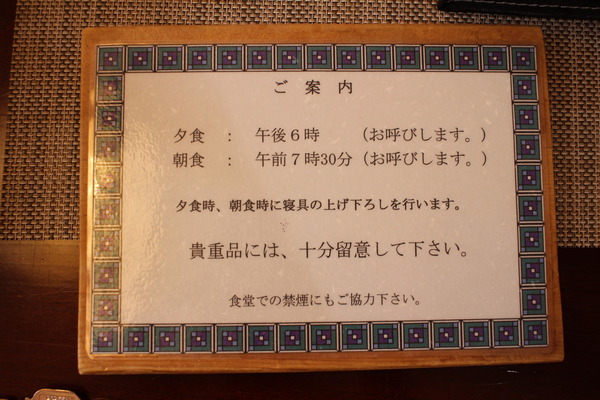 ご 案 内
夕食 ： 午後６時 （お呼びします。）
朝食 ： 午前７時30分（お呼びします。）
夕食時、朝食時に寝具の上げ下ろしを行います。
貴重品には、十分留意して下さい。
食堂での禁煙にもご協力下さい。